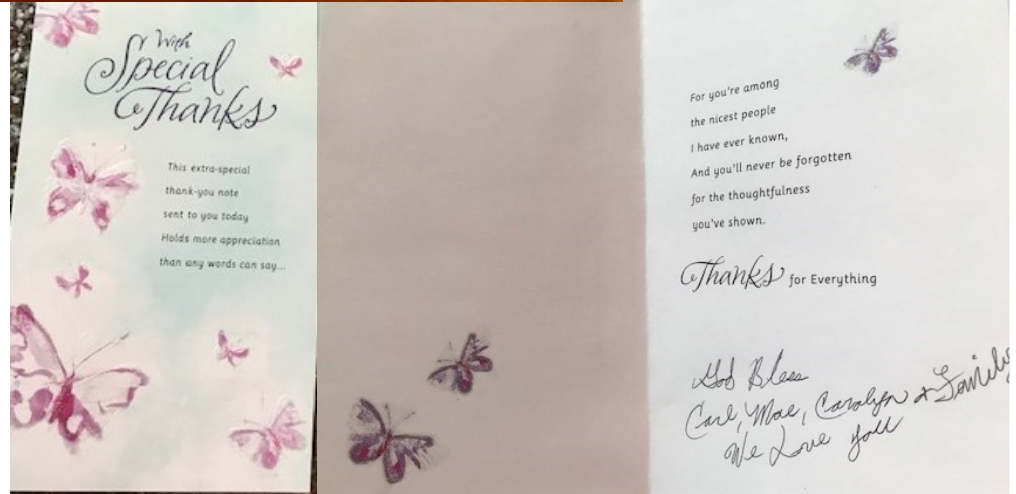 With
Special
Thanks
This extra-special
thank-you note
sent to you today
Holds more appreciation
than any words can say...
For you're among
the nicest people
I have ever known,
And you'll never be forgotten
for the thoughtfulness
you've shown.
Thanks for Everything
God Bless
Carl, Mae, Carolyn & Family
We Love you